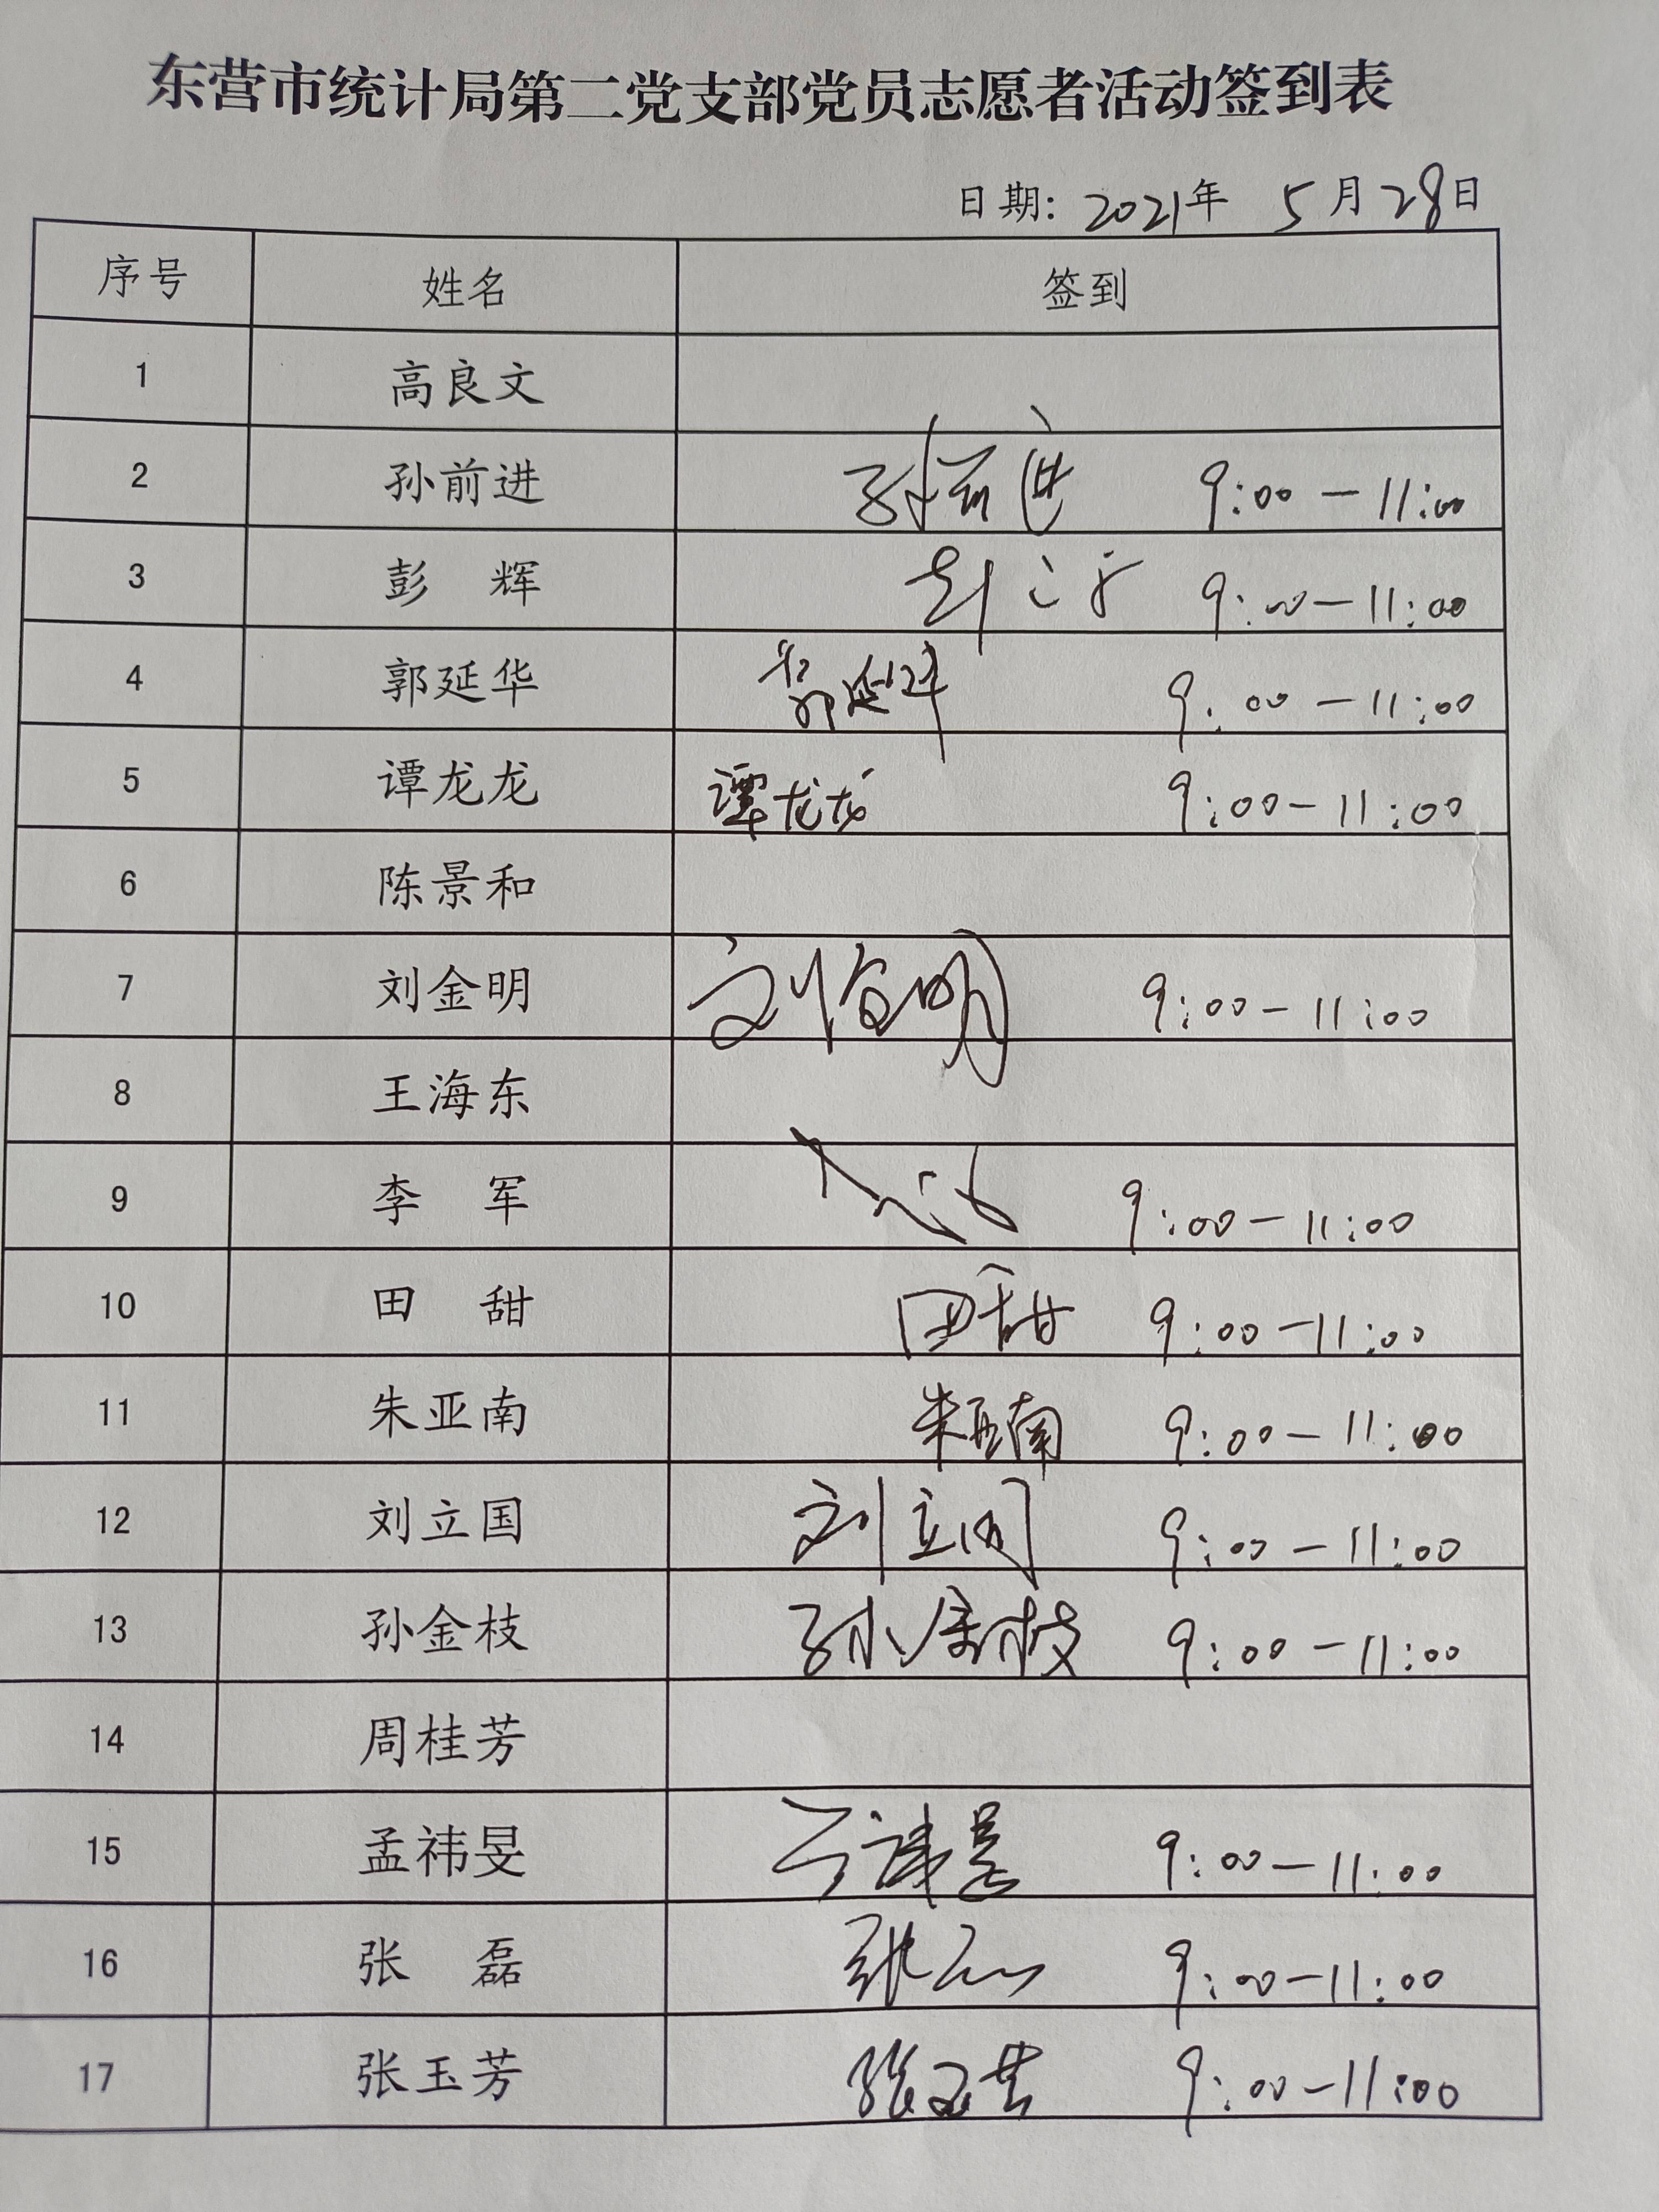 东营市统计局第二党支部党员志愿者活动签到表
日期: 2021年 5月28日
序号 姓名 签到
1 高良文
2 孙前进 孙前进 9:00-11:00
3 彭 辉 9:00-11:00
4 郭延华 郭延华 9:00-11:00
5 谭龙龙 谭龙龙 9:00-11:00
6 陈景和
7 刘金明 刘金明 9:00-11:00
8 王海东
9 李 军 9:00-11:00
10 田 甜 田甜 9:00-11:00
11 朱亚南 朱亚南 9:00-11:00
12 刘立国 刘立国 9:00-11:00
13 孙金枝 孙金枝 9:00-11:00
14 周桂芳
15 孟祎旻 9:00-11:00
16 张 磊 张磊 9:00-11:00
17 张玉芳 张玉芳 9:00-11:00